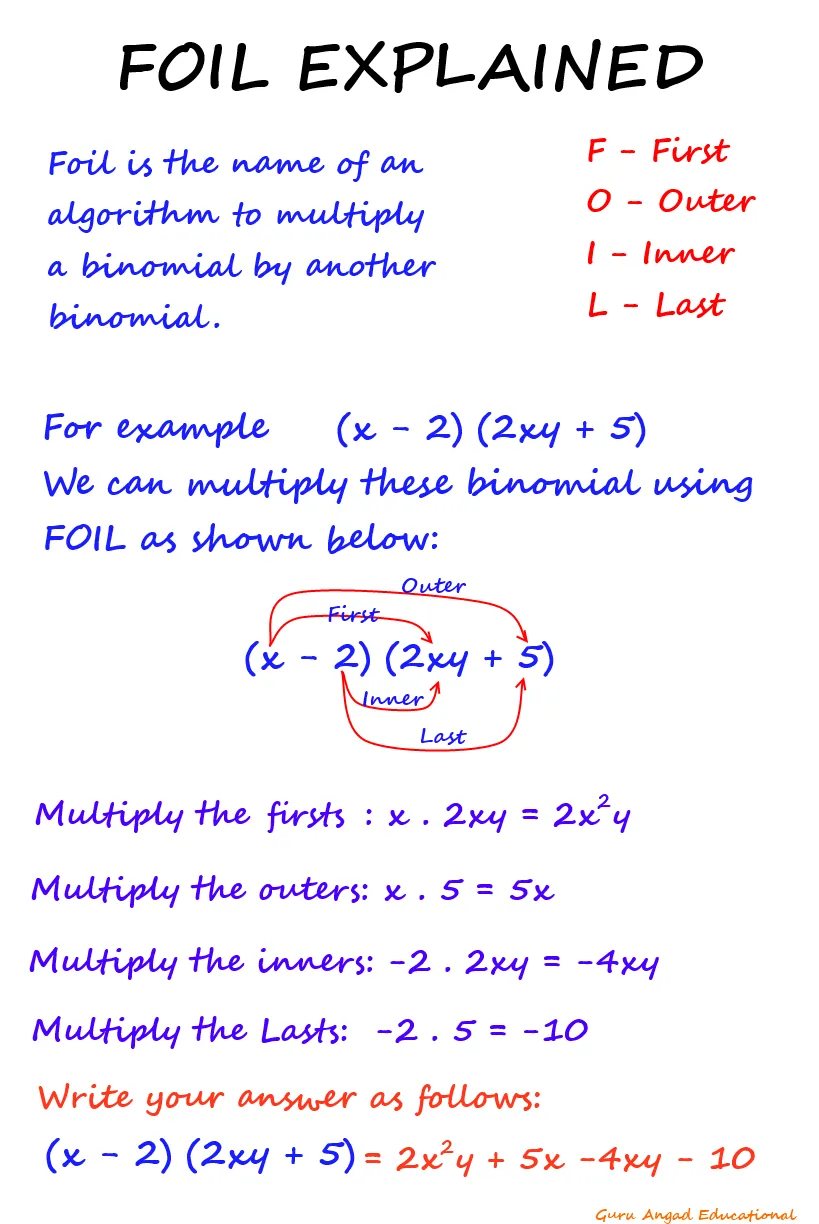 FOIL EXPLAINED
Foil is the name of an
algorithm to multiply
a binomial by another
binomial.
F - First
O - Outer
I - Inner
L - Last
For example (x - 2) (2xy + 5)
We can multiply these binomial using
FOIL as shown below:
Outer
First
(x - 2) (2xy + 5)
Inner
Last
Multiply the firsts : x . 2xy = 2x²y
Multiply the outers: x . 5 = 5x
Multiply the inners: -2 . 2xy = -4xy
Multiply the Lasts: -2 . 5 = -10
Write your answer as follows:
(x - 2) (2xy + 5) = 2x²y + 5x -4xy - 10
Guru Angad Educational